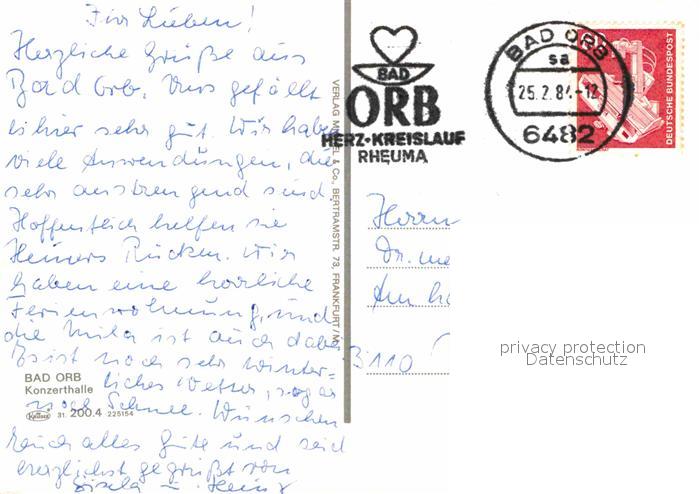 Ihr Lieben!
Herzliche Grüße aus
Bad Orb. Uns gefällt
es hier sehr gut. Wir haben
viele Anwendungen, die
sehr anstrengend sind
Hoffentlich helfen sie
Heiners Rücken. Wir
haben eine herrliche
Ferienwohnung, und
die Mila ist auch dabei
Es ist noch sehr winter=
liches Wetter, sogar
noch Schnee. Wünschen
Euch alles Gute und seid
herzlichst gegrüßt von
Gisela u. Heinz
BAD ORB
Konzerthalle
Krüger 31. 200.4 225154
VERLAG & Co., BERTRAMSTR. 73, FRANKFURT/M.
BAD
ORB
HERZ-KREISLAUF
RHEUMA
BAD ORB
sa
25.2.84-12
6482
DEUTSCHE BUNDESPOST
Herrn
Dr. me
Am
3110
privacy protection
Datenschutz